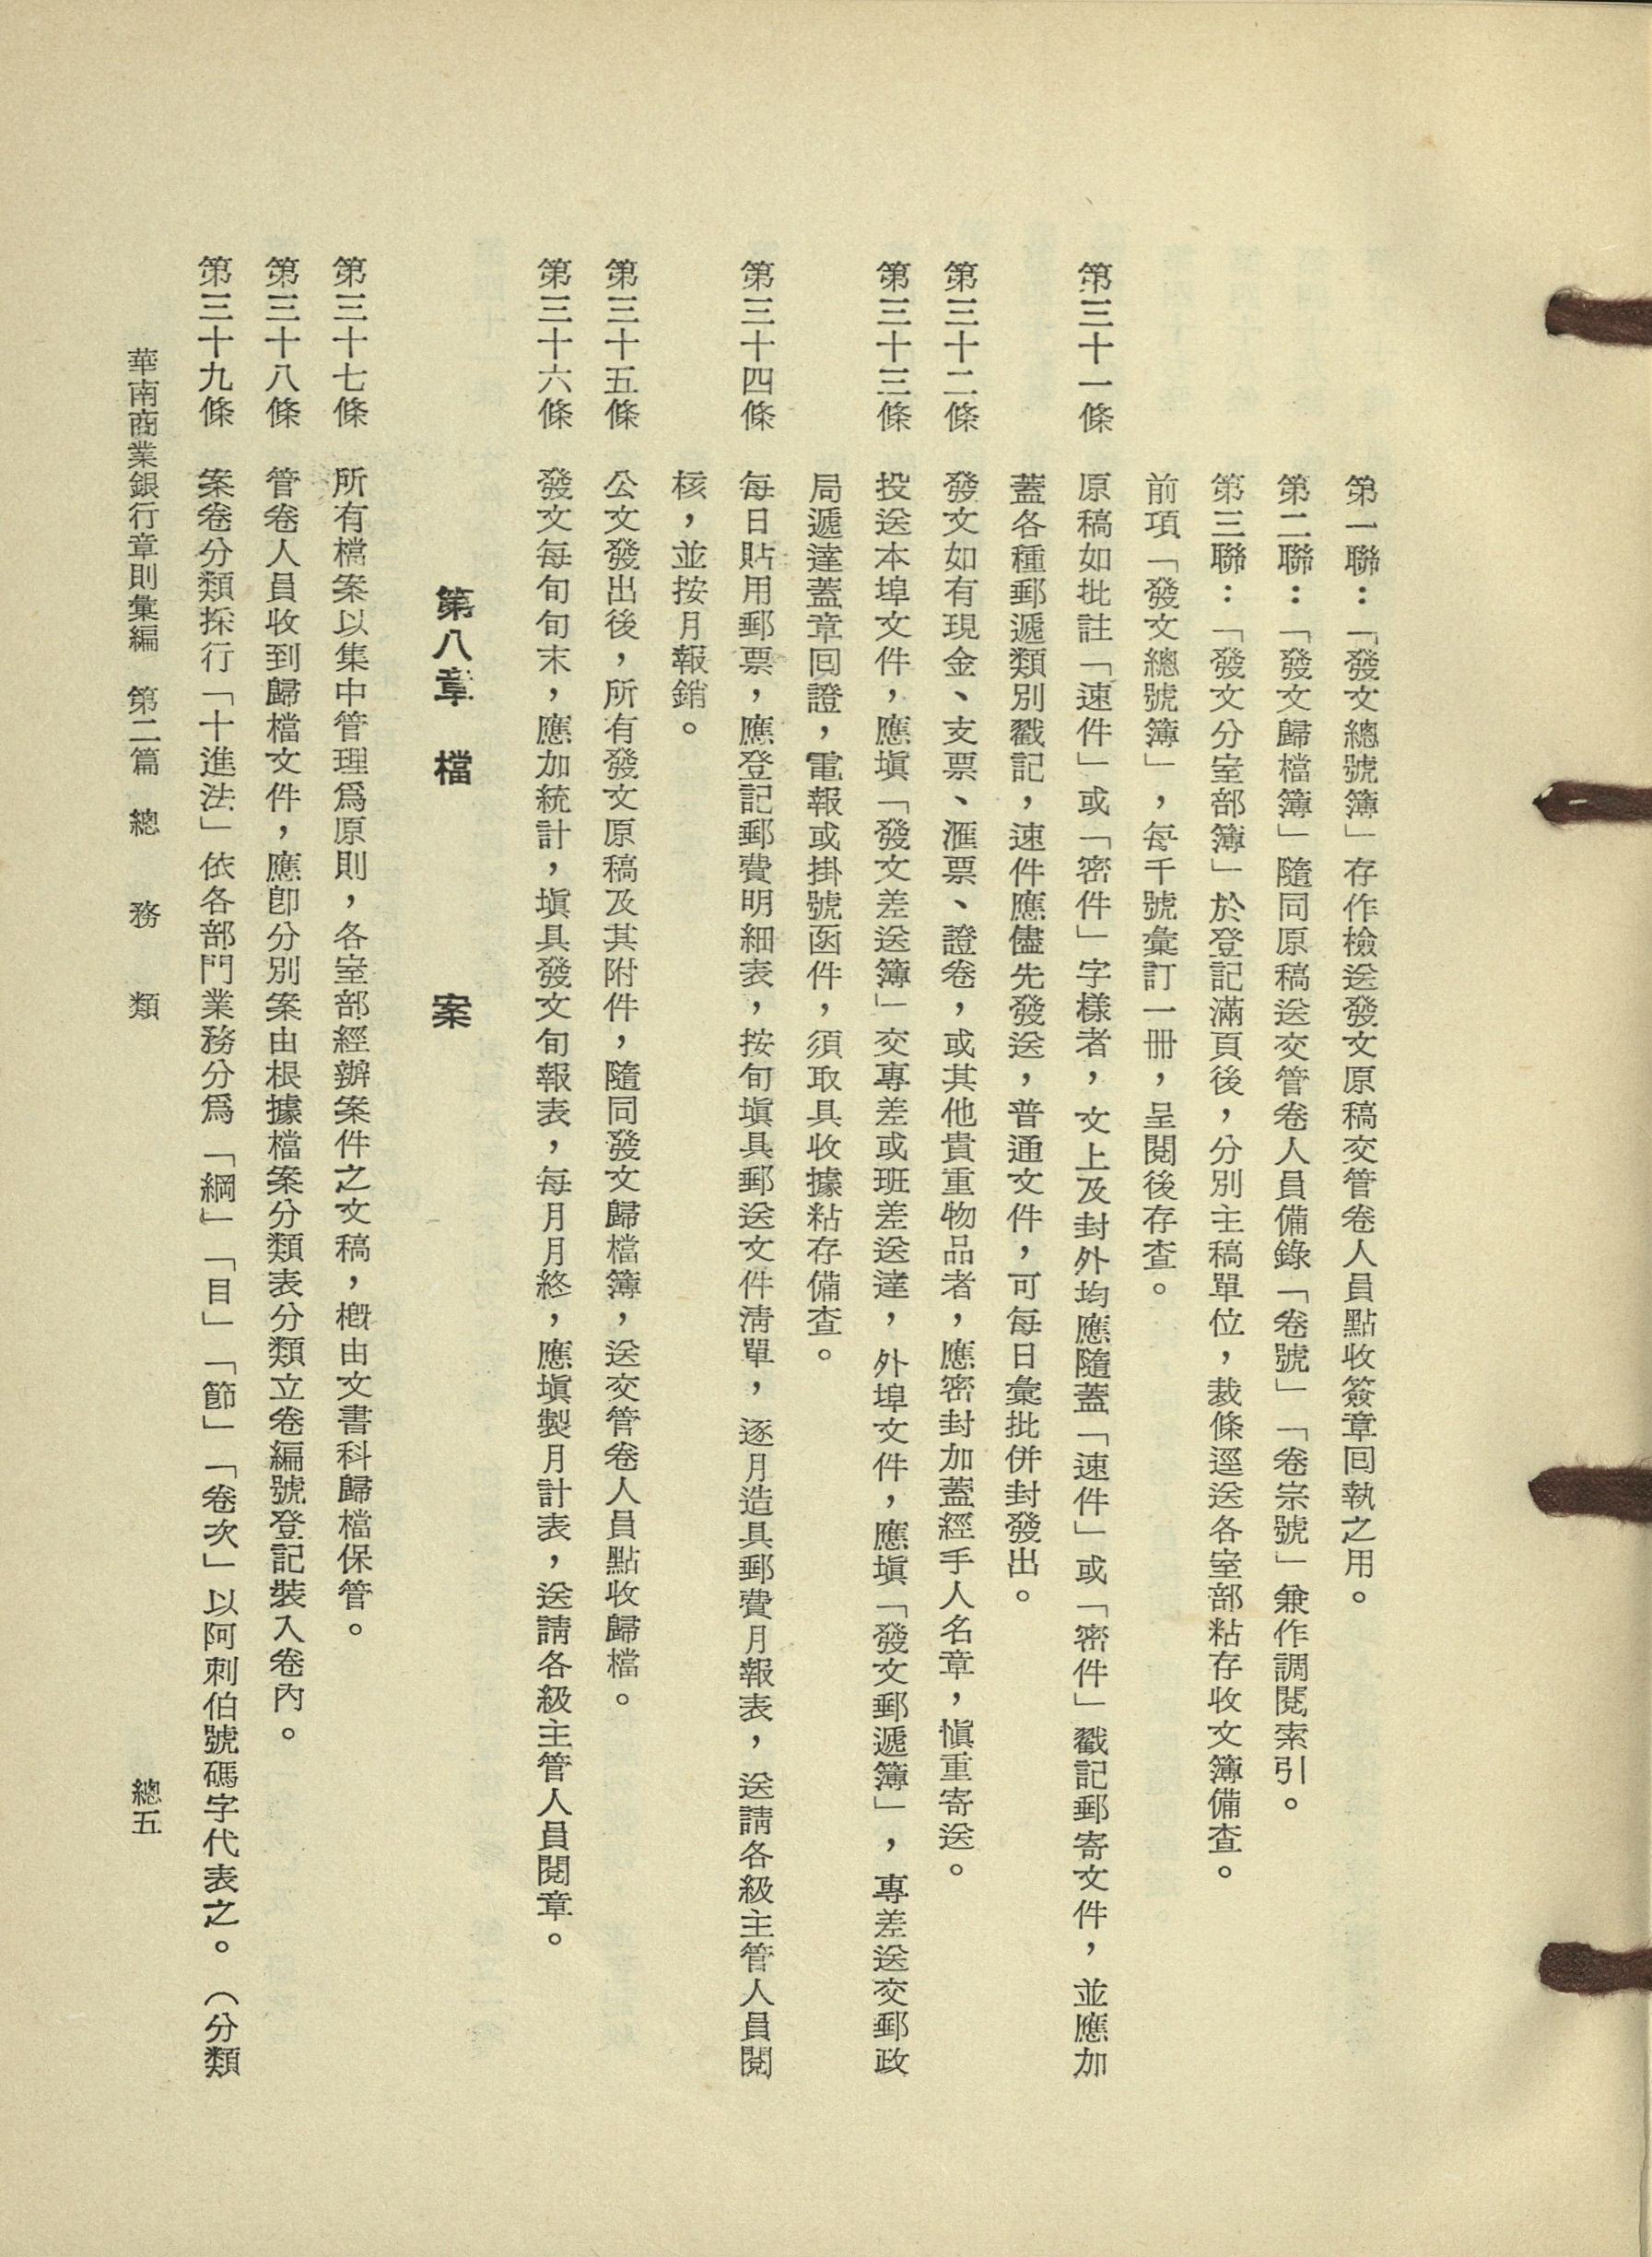 第一聯：「發文總號簿」存作檢送發文原稿交管卷人員點收簽章回執之用。
第二聯：「發文歸檔簿」隨同原稿送交管卷人員備錄「卷號」「卷宗號」兼作調閱索引。
第三聯：「發文分室部簿」於登記滿頁後，分別主稿單位，裁條逕送各室部粘存收文簿備查。
前項「發文總號簿」，每千號彙訂一冊，呈閱後存查。
第三十一條　原稿如批註「速件」或「密件」字樣者，文上及封外均應隨蓋「速件」或「密件」戳記郵寄文件，並應加
蓋各種郵遞類別戳記，速件應儘先發送，普通文件，可每日彙批併封發出。
第三十二條　發文如有現金、支票、滙票、證卷，或其他貴重物品者，應密封加蓋經手人名章，愼重寄送。
第三十三條　投送本埠文件，應塡「發文差送簿」交專差或班差送達，外埠文件，應塡「發文郵遞簿」，專差送交郵政
局遞達蓋章回證，電報或掛號函件，須取具收據粘存備查。
第三十四條　每日貼用郵票，應登記郵費明細表，按旬塡具郵送文件淸單，逐月造具郵費月報表，送請各級主管人員閱
核，並按月報銷。
第三十五條　公文發出後，所有發文原稿及其附件，隨同發文歸檔簿，送交管卷人員點收歸檔。
第三十六條　發文每旬旬末，應加統計，塡具發文旬報表，每月月終，應塡製月計表，送請各級主管人員閱章。
第八章　檔　案
第三十七條　所有檔案以集中管理爲原則，各室部經辦案件之文稿，槪由文書科歸檔保管。
第三十八條　管卷人員收到歸檔文件，應卽分別案由根據檔案分類表分類立卷編號登記裝入卷內。
第三十九條　案卷分類採行「十進法」依各部門業務分爲「綱」「目」「節」「卷次」以阿刺伯號碼字代表之。（分類
華南商業銀行章則彙編　第二篇　總　務　類　總五